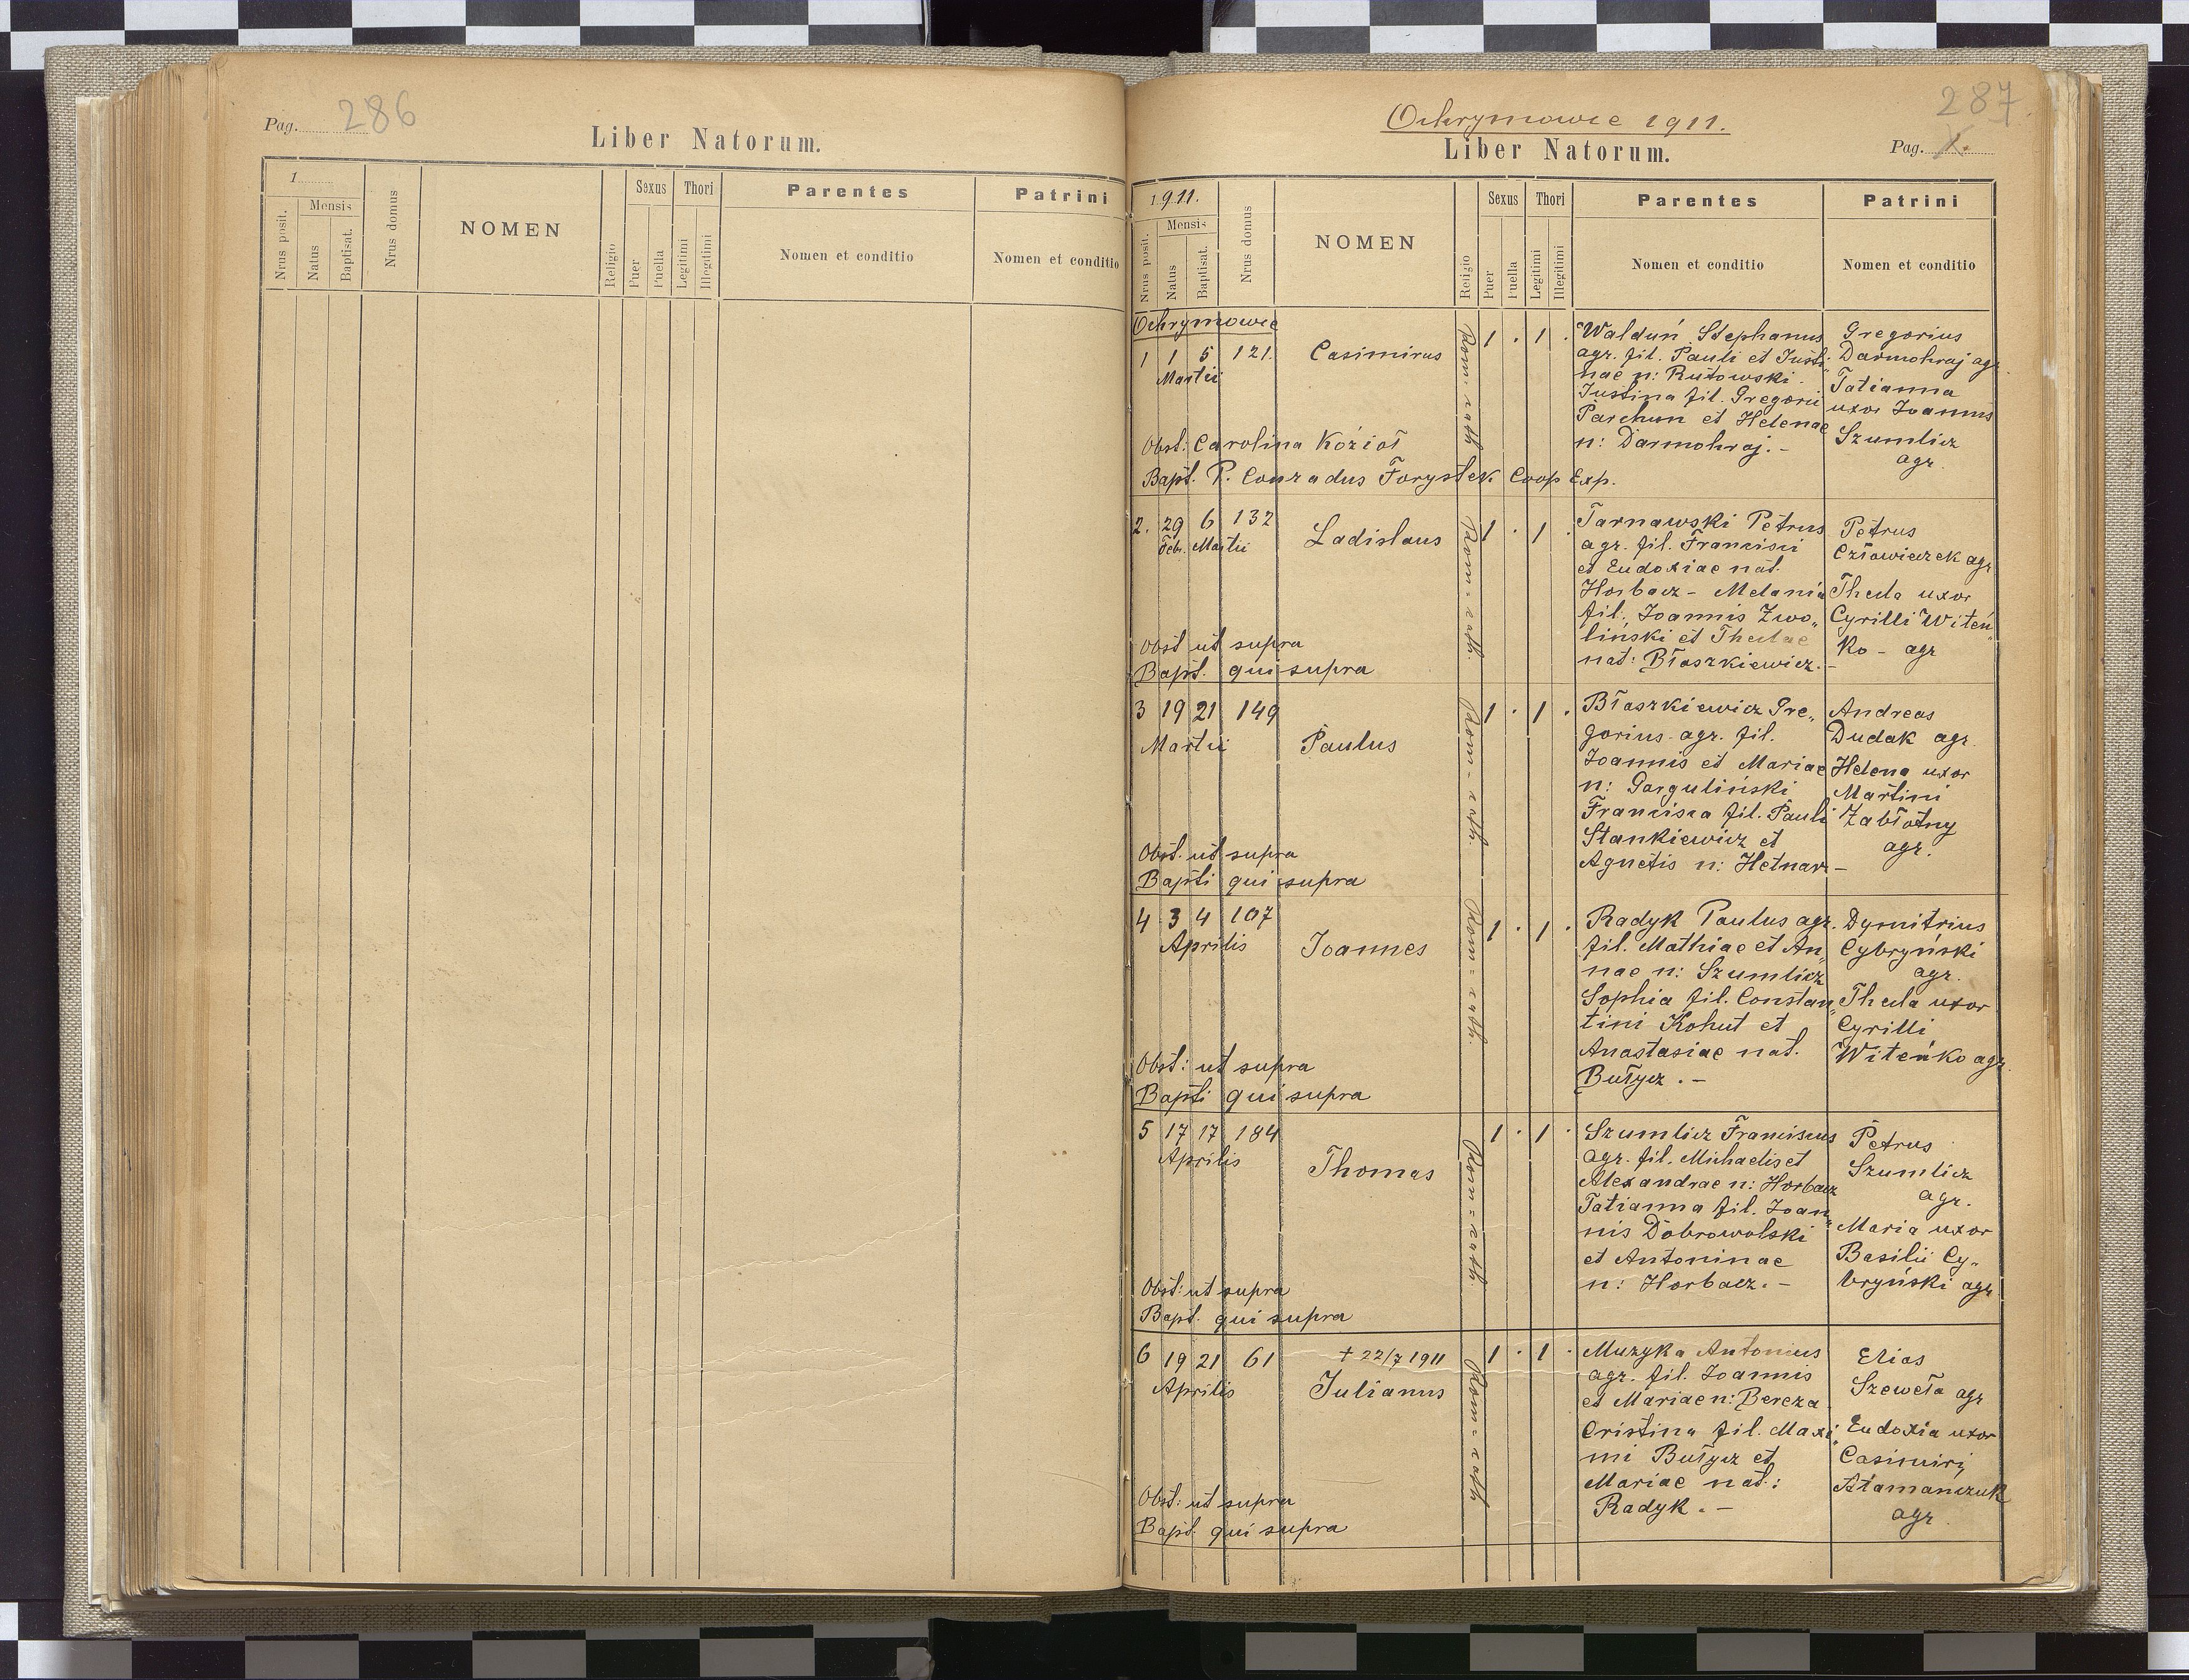 Pag. 286
Liber Natorum.
1
Nrus posit.
Mensis
Natus
Baptisat.
Nrus domus
NOMEN
Religio
Sexus
Puer
Puella
Thori
Legitimi
Illegitimi
Parentes
Nomen et conditio
Patrini
Nomen et conditio
287
Ochrymowce 1911.
Liber Natorum.
Pag. X.
1911.
Nrus posit.
Mensis
Natus
Baptisat.
Nrus domus
NOMEN
Religio
Sexus
Puer
Puella
Thori
Legitimi
Illegitimi
Parentes
Nomen et conditio
Patrini
Nomen et conditio
Ochrymowce
1 1 5 121.
Martii
Casimirus
Rom. cath.
1 . 1 .
Walduń Stephanus
agr. fil. Pauli et Justi„
nae n: Rutowski.
Justina fil. Gregorii
Parchun et Helenae
n: Darmohraj. -
Gregorius
Darmohraj agr.
Tatianna
uxor Joannis
Szumlicz
agr.
Obst: Carolina Kozioł
Bapt. P. Conradus Forystek Coop Exp.
2. 29 6 132
Febr. Martii
Ladislaus
Rom = cath.
1 . 1 .
Tarnawski Petrus
agr. fil. Francisci
et Eudoxiae nat.
Horbacz - Melania
fil. Joannis Zwo„
liński et Theclae
nat: Błaszkiewicz. -
Petrus
Człowieczek agr
Thecla uxor
Cyrilli Witeń„
ko - agr
Obst ut supra
Bapt. qui supra
3 19 21 149
Martii
Paulus
Rom = cath.
1 . 1 .
Błaszkiewicz Gre„
gorius agr. fil.
Joannis et Mariae
n: Garguliński
Francisca fil. Pauli
Stankiewicz et
Agnetis n: Hetnar -
Andreas
Dudak agr.
Helena uxor
Martini
Zabłotny
agr.
Obst. ut supra
Bapti qui supra
4 3 4 107
Aprilis
Joannes
Rom = cath.
1 . 1 .
Radyk Paulus agr.
fil. Mathiae et An„
nae n: Szumlicz
Sophia fil. Constan„
tini Kohut et
Anastasiae nat.
Bułycz. -
Dymitrius
Cybryński
agr.
Thecla uxor
Cyrilli
Witeńko agr.
Obst: ut supra
Bapti qui supra
5 17 17 184
Aprilis
Thomas
Rom = cath.
1 . 1 .
Szumlicz Franciscus
agr. fil. Michaelis et
Alexandrae n: Horbacz
Tatianna fil. Joan„
nis Dobrowolski
et Antoninae
n: Horbacz. -
Petrus
Szumlicz
agr.
Maria uxor
Basilii Cy„
bryński agr
Obst: ut supra
Bapt. qui supra
6 19 21 61
Aprilis
+ 22/7 1911
Julianus
Rom = cath
1 . 1 .
Muzyka Antonius
agr. fil. Joannis
et Mariae n: Bereza
Cristina fil. Maxi„
mi Bułycz et
Mariae nat:
Radyk. -
Elias
Szeweła agr
Eudoxia uxor
Casimiri
Atamańczuk
agr.
Obst: ut supra
Bapt. qui supra